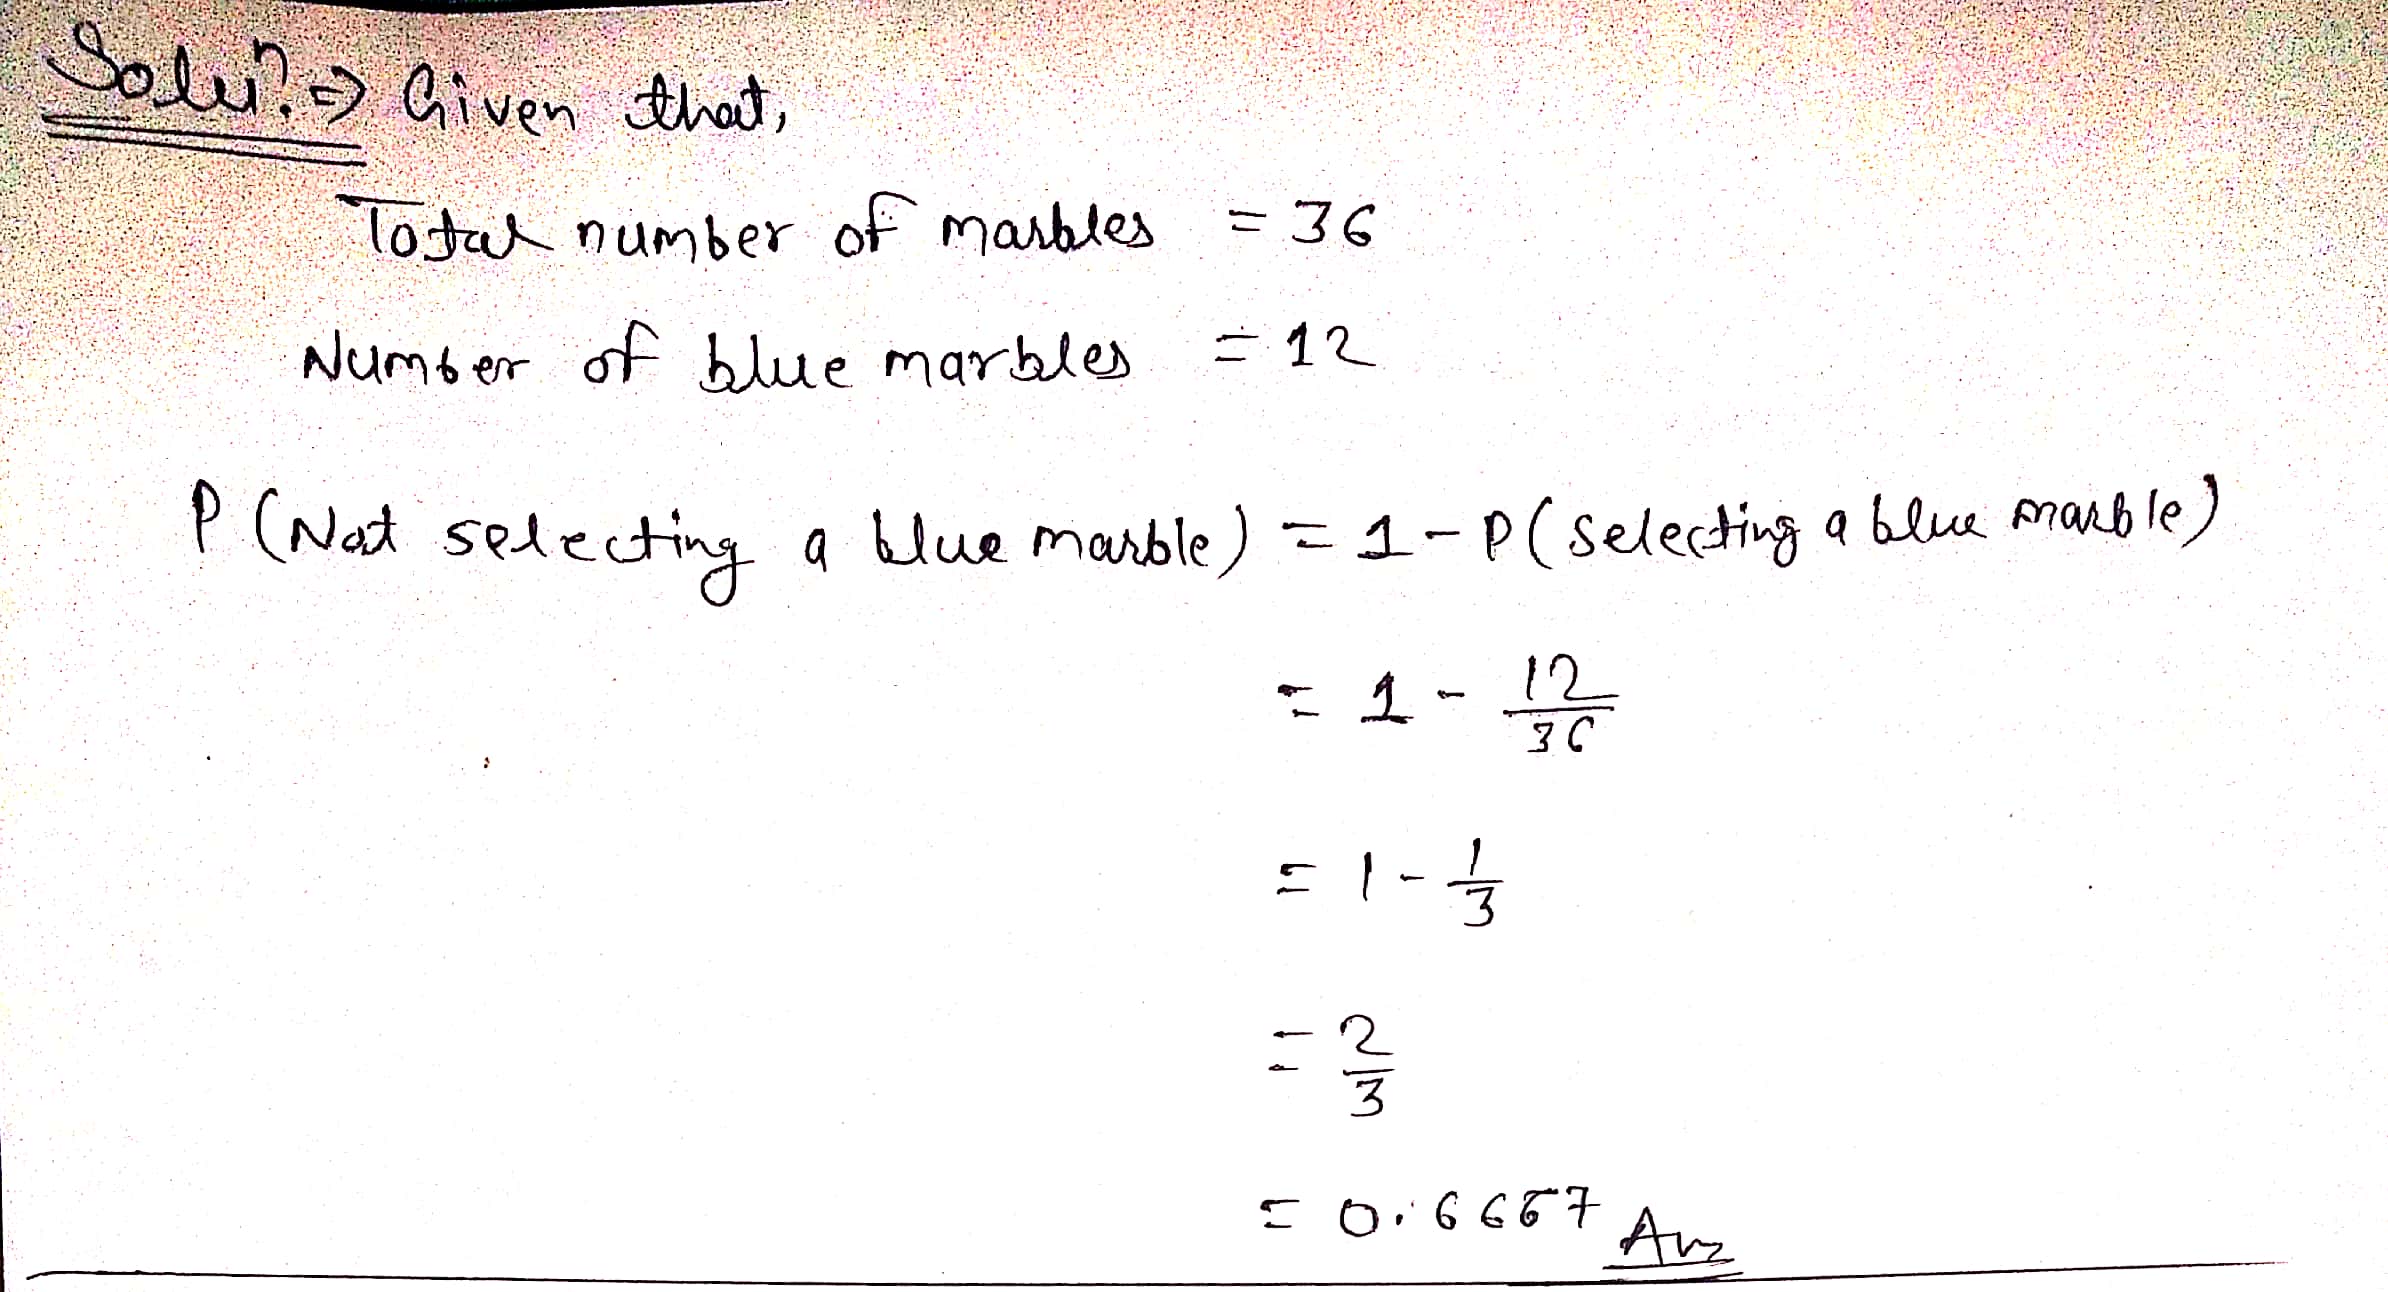 Soluⁿ. ⇒ Given that,
Total number of marbles = 36
Number of blue marbles = 12
P (Not selecting a blue marble) = 1 - P (selecting a blue marble)
= 1 - 12/36
= 1 - 1/3
= 2/3
= 0.6667 Ans